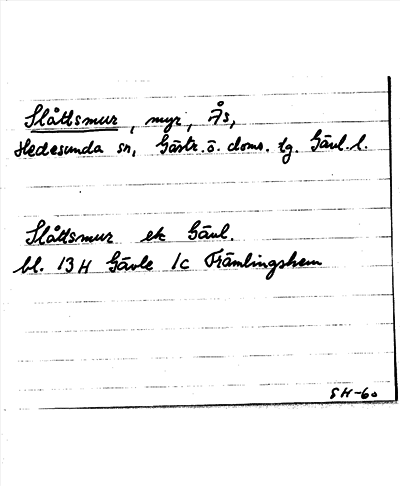 Slåttsmur, myr, Ås,
Hedesunda sn, Gästr. ö. doms. tg. Gävl. l.
Slåttsmur ek Gävl.
bl. 13H Gävle 1c Främlingshem
SH-60